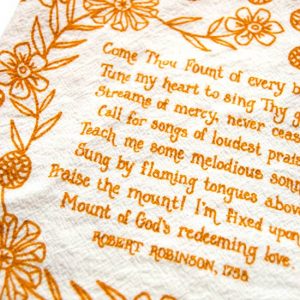 Come Thou Fount of every b
Tune my heart to sing Thy
Streams of mercy, never ceas
Call for songs of loudest prai
Teach me some melodious son
Sung by flaming tongues abov
Praise the mount! I'm fixed upon
Mount of God's redeeming love.
ROBERT ROBINSON, 1758